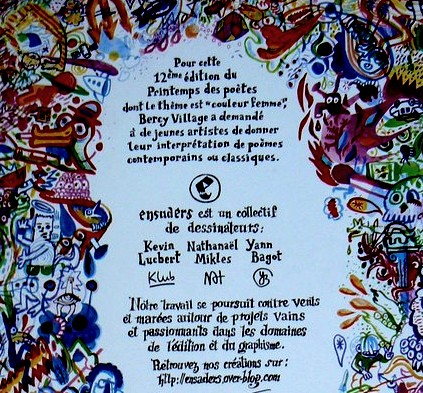 Pour cette
12ème édition du
Printemps des poètes
dont le thème est "couleur femme",
Bercy Village a demandé
à de jeunes artistes de donner
leur interprétation de poèmes
contemporains ou classiques.
ensaders est un collectif
de dessinateurs:
Kevin Nathanaël Yann
Lucbert Mikles Bagot
Klub NAT YB
Nôtre travail se poursuit contre vents
et marées autour de projets vains
et passionnants dans les domaines
de l'édition et du graphisme.
Retrouvez nos créations sur :
http://ensaders.over-blog.com